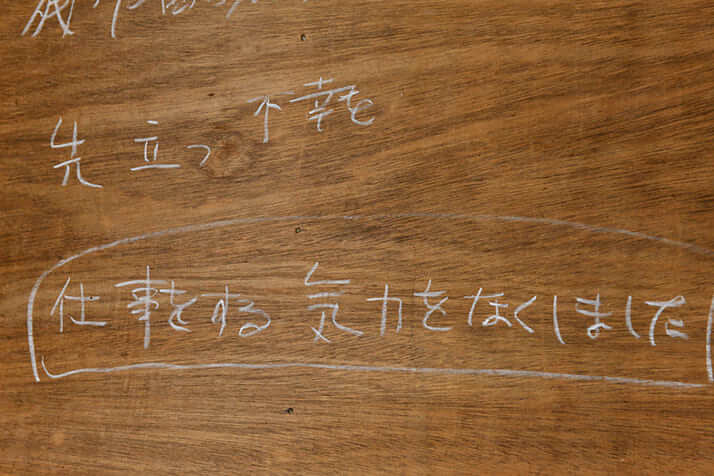 先立つ不幸を
仕事をする気力をなくしました